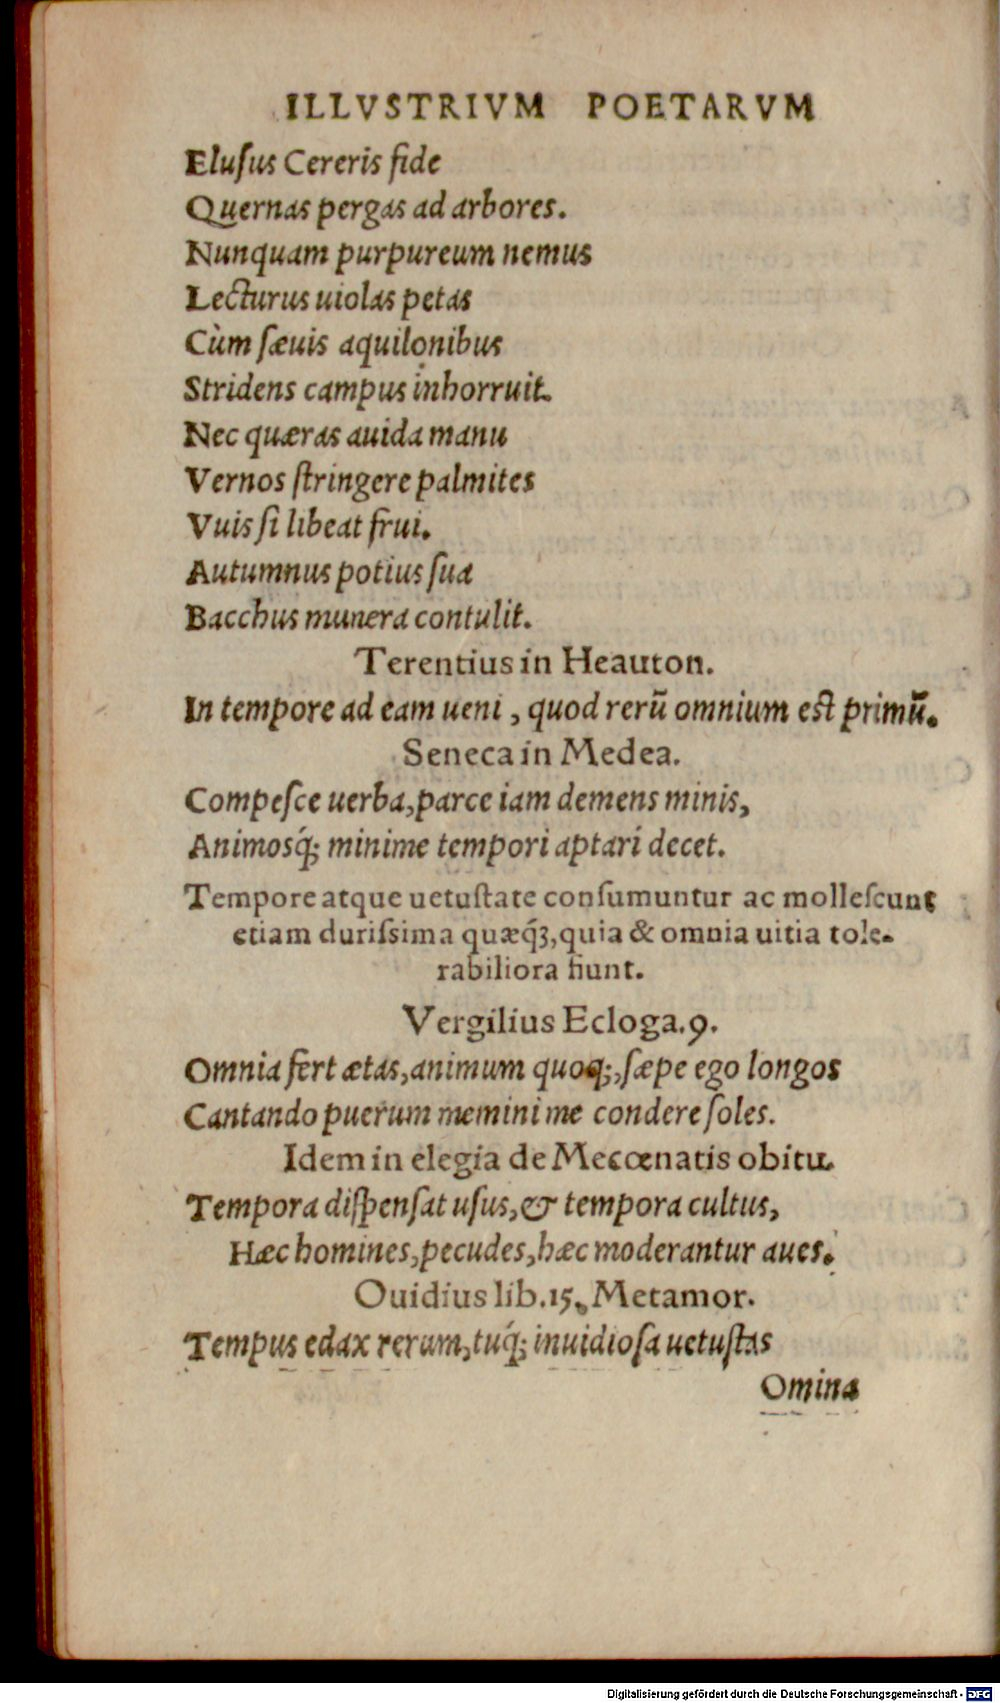 ILLVSTRIVM POETARVM
Eluſus Cereris fide
Quernas pergas ad arbores.
Nunquam purpureum nemus
Lecturus uiolas petas
Cùm ſæuis aquilonibus
Stridens campus inhorruit.
Nec quæras auida manu
Vernos ſtringere palmites
Vuis ſi libeat frui.
Autumnus potius ſua
Bacchus munera contulit.
Terentius in Heauton.
In tempore ad eam ueni, quod rerū omnium est primū.
Seneca in Medea.
Compeſce uerba, parce iam demens minis,
Animosq́; minime tempori aptari decet.
Tempore atque uetuſtate conſumuntur ac molleſcunt
etiam duriſsima quæq́ꝫ, quia & omnia uitia tole-
rabiliora fiunt.
Vergilius Ecloga. 9.
Omnia fert ætas, animum quoq;, ſæpe ego longos
Cantando puerum memini me condere ſoles.
Idem in elegia de Mecœnatis obitu.
Tempora diſpenſat uſus, & tempora cultus,
Hæc homines, pecudes, hæc moderantur aues.
Ouidius lib. 15. Metamor.
Tempus edax rerum, tuq́; inuidioſa uetuſtas
Omina
Digitalisierung gefördert durch die Deutsche Forschungsgemeinschaft - DFG